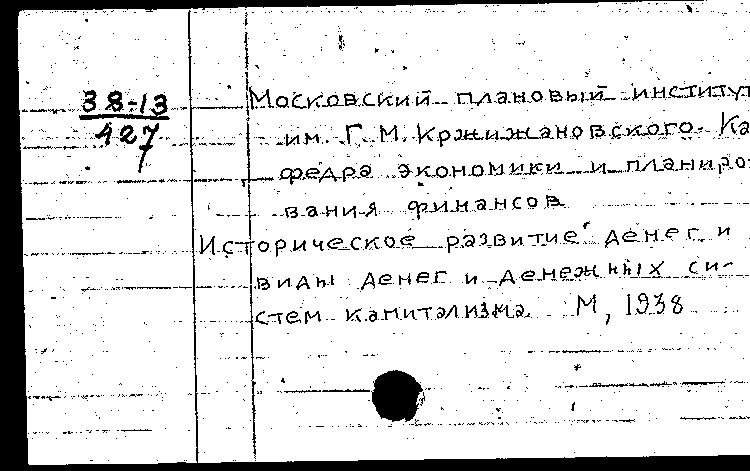 38-13
427
Московский плановый институт
им. Г. М. Кржижановского. Ка-
федра экономики и планиро-
вания финансов
Историческое развитие денег и
виды денег и денежных си-
стем капитализма. М, 1938